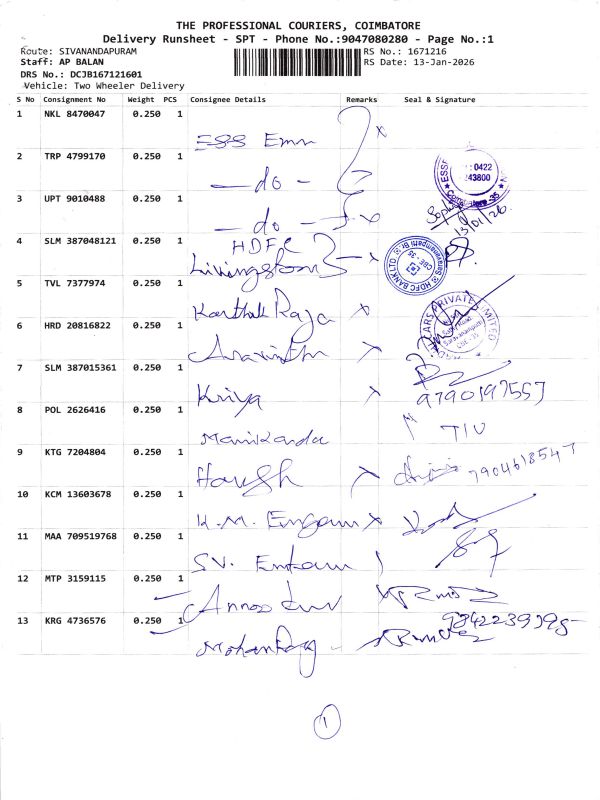 THE PROFESSIONAL COURIERS, COIMBATORE
Delivery Runsheet - SPT - Phone No.:9047080280 - Page No.:1
Route: SIVANANDAPURAM
RS No.: 1671216
Staff: AP BALAN
RS Date: 13-Jan-2026
DRS No.: DCJB167121601
Vehicle: Two Wheeler Delivery
S No Consignment No Weight PCS Consignee Details Remarks Seal & Signature
1 NKL 8470047 0.250 1
ESS Emm
2 TRP 4799170 0.250 1
-do-
0422
3 UPT 9010488 0.250 1
-do-
13/01/26
4 SLM 387048121 0.250 1
HDFC
Livingstoon
HDFC BANK LTD
CBE - 35
5 TVL 7377974 0.250 1
Karthik Raja
CARS PRIVATE LIMITED
6 HRD 20816822 0.250 1
Aravinth
7 SLM 387015361 0.250 1
Kriya
9790197557
8 POL 2626416 0.250 1
Manikanda
9 KTG 7204804 0.250 1
Harish
7904618547
10 KCM 13603678 0.250 1
K.M.
11 MAA 709519768 0.250 1
SV.
12 MTP 3159115 0.250 1
13 KRG 4736576 0.250 1
Mohanraj
1